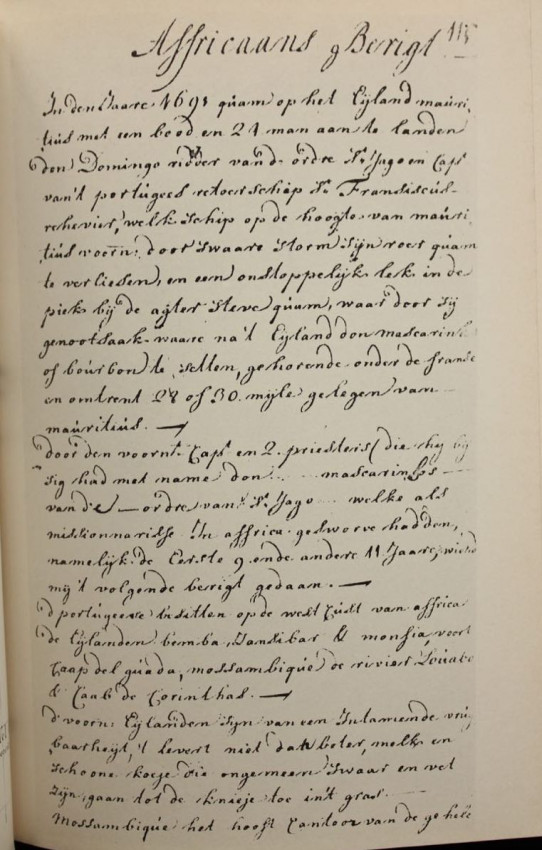 Affricaans Berigt 115
In den Jaare 1691 quam op het Eyland mauri,
tius met een bood en 21 man aan te landen
den Domingo ridder van d' ordre St. Jago en Capt
van't portugees retoerschip St. Fransiscus
welk schip op de hoogte van mauri
tius voorn: door swaare storm zijn roer quam
te verliesen, en een onstoppelijk lek in de
piek bij de agter steve quam, waar door sij
genootsaakt waare na't Eyland don mascarin
of bourbon te setten, gehorende onder de franse
en omtrent 28 of 30 mijle gelegen van
mauritius.
door den voornt. Capt en 2 priesters (die hij bij
sig had met name don mascarinhos
van de ordre van St. Jago welke als
missionarisse In affrica geswo​rve hadden,
namelijk de Eerste 9 ende andere 11 Jaare, wierd
mij 't volgende berigt gedaan.
d' portugeese besitten op de west Cust van affrica
de Eylanden bemba, Zansibar & monsia, voort
Caap del guada, mossambique de rivier
& Caab de Corinthas.
d' voorn: Eylanden sijn van een Intamende vrug
baarheijt, 't levert niet dat boter, melk en
schoone koeje die ongemeen swaar en vet
zijn, gaan tot de knieje toe in't gras.
Mossambique het hooft Cantoor van de geheele